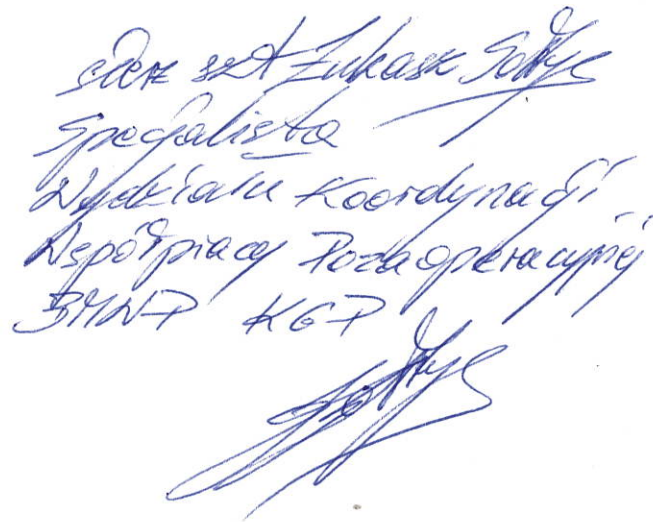 sierż szt Łukasz Sołtys
Specjalista
Wydziału Koordynacji
Współpracy Pozaoperacyjnej
BMWP KGP